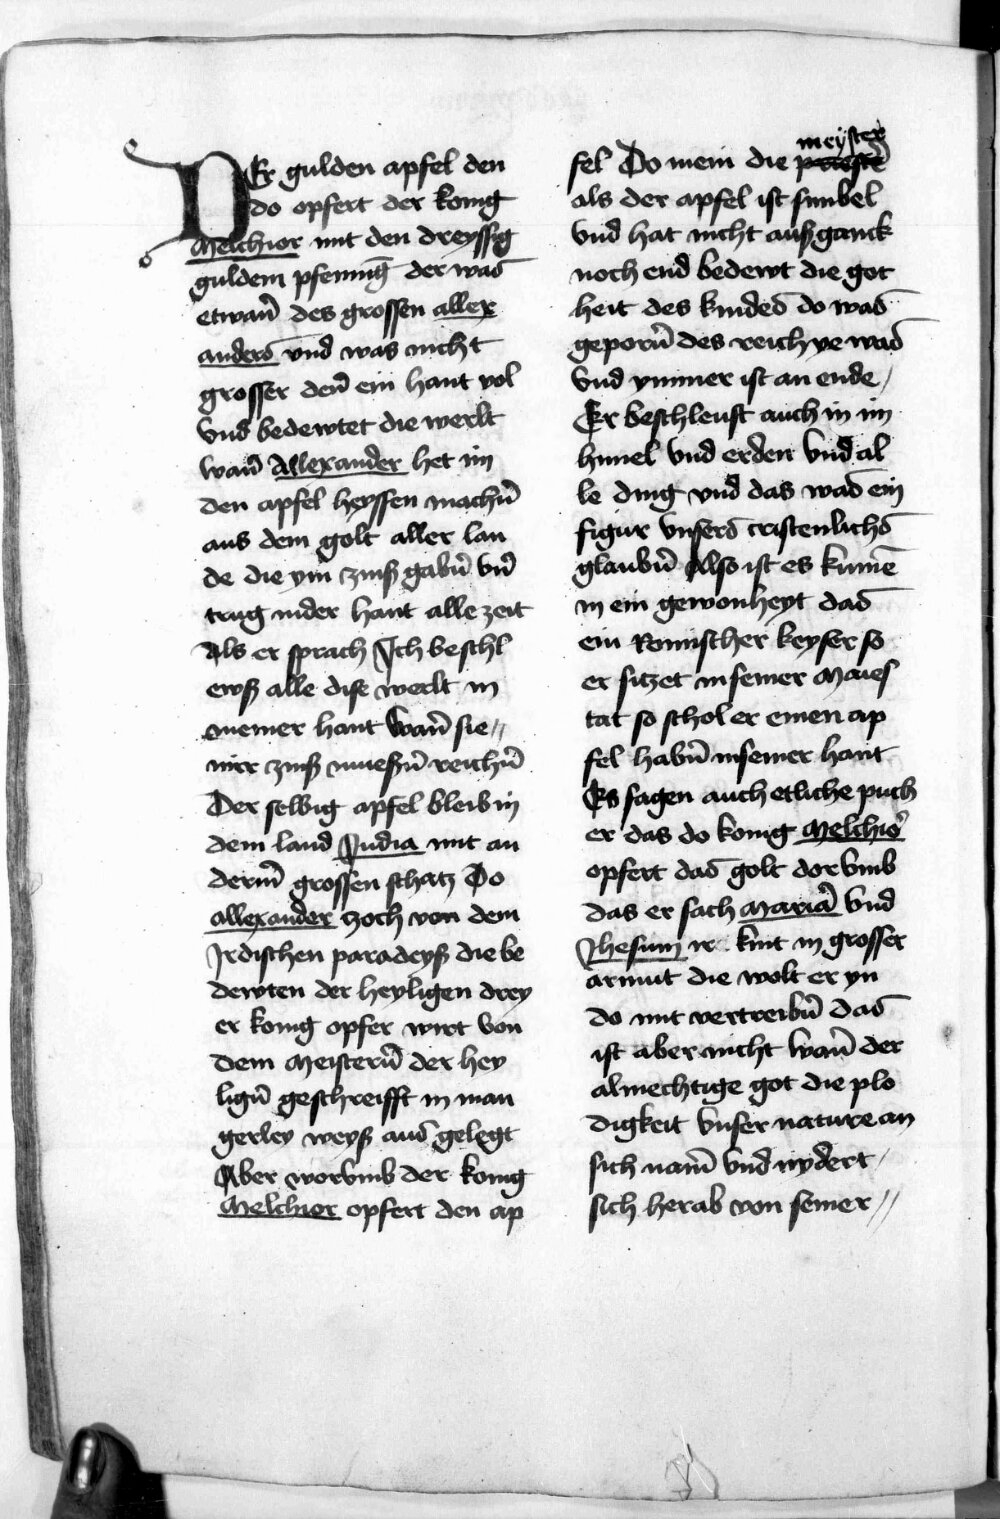 DEr gulden apfel den
do opfert der konig
Melchior mit den dreyssig
guldem pfenniḡ der was
etwan̄ des grossen allex
anders vnd was nicht
grosser den̄ ein hant vol
Vnd bedewtet die werlt
wan̄ Allexander het im
den apfel heyssen machn̄
aus dem golt aller lan
de die ym zinß gabn̄ vn̄
trug inder hant alle zeit
Als er sprach Ich beschl
ewß alle dise werlt in
meiner hant Wan̄ sie//
mir zinß mueßn̄ reichn̄
Der selbig apfel bleib in
dem land India mit an
derm̄ grossen schatz Do
Allexander zoch von dem
Irdischen paradeyß die be
dewten der heyligen drey
er konig opfer wirt von
dem Meistern̄ der hey
lign̄ geschreifft in man
gerley weyß aus gelegt
Aber worvmb der konig
Melchior opfert den ap
fel Do mein die meyster
als der apfel ist sinbel
Vnd hat nicht außganck
noch end bedewt die got
heit des kindes do was
geporn̄ des reich ye was
Vnd ymmer ist an ende/
Er beschleust auch in im
himel Vnd erden Vnd al
le ding vnd das was ein
figur vnsers cristenlichs
glaubn̄ Also ist es kumē
in ein gewonheyt das
ein Romischer keyser so
er sitzet in seiner Maies
tat so schol er einen ap
fel habn̄ in seiner hant
Es sagen auch etliche puch
er das do konig Melchior
opfert das golt dorvmb
das er sach Maria̅ Vnd
Jhesum ir kint in grosser
armut die wolt er yn
do mit vertreibn̄ das
ist aber nicht wan̄ der
almechtige got die plo
digkeit vnser nature an
sich nam̄ vnd nydert/
sich herab von seiner//